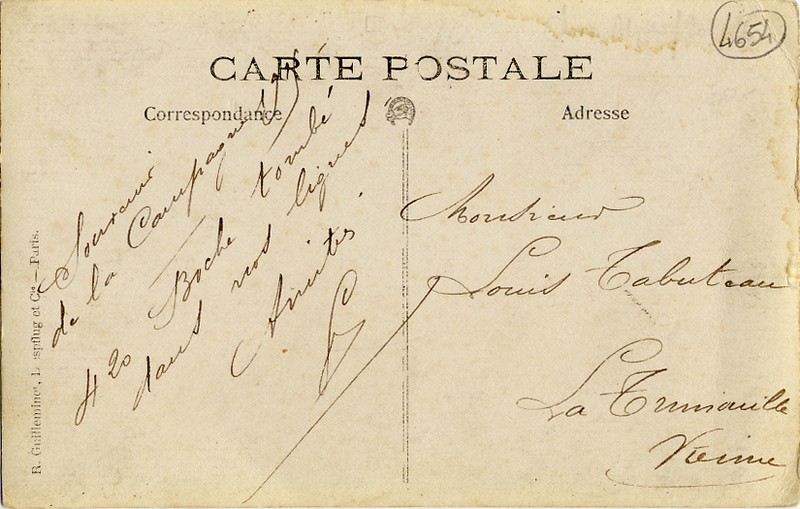 4654
CARTE POSTALE
Correspondance
Adresse
Souvenir
de la Campagne
420 Boche tombé
dans nos lignes
Amitiés
Monsieur
Louis Tabuteau
La Trimouille
Vienne
R. Guilleminot, Bœspflug et Cie — Paris.